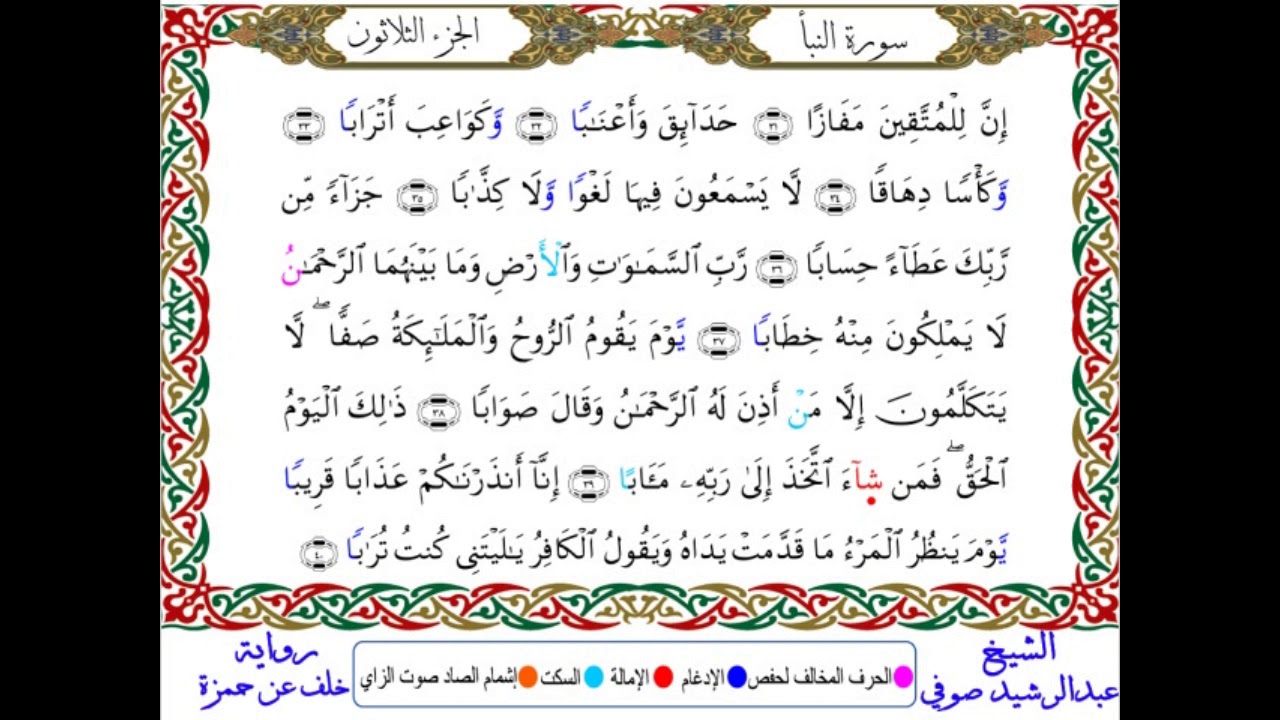 سورة النبأ
الجزء الثلاثون
إِنَّ لِلْمُتَّقِينَ مَفَازًا ٣١ حَدَآئِقَ وَأَعْنَـٰبًا ٣٢ وَّكَوَاعِبَ أَتْرَابًا ٣٣
وَّكَأْسًا دِهَاقًا ٣٤ لَّا يَسْمَعُونَ فِيهَا لَغْوًا وَّلَا كِذَّٰبًا ٣٥ جَزَآءً مِّن
رَّبِّكَ عَطَآءً حِسَابًا ٣٦ رَّبِّ ٱلسَّمَـٰوَٰتِ وَٱلْأَرْضِ وَمَا بَيْنَهُمَا ٱلرَّحْمَـٰنُ
لَا يَمْلِكُونَ مِنْهُ خِطَابًا ٣٧ يَّوْمَ يَقُومُ ٱلرُّوحُ وَٱلْمَلَـٰٓئِكَةُ صَفًّا ۖ لَّا
يَتَكَلَّمُونَ إِلَّا مَنْ أَذِنَ لَهُ ٱلرَّحْمَـٰنُ وَقَالَ صَوَابًا ٣٨ ذَٰلِكَ ٱلْيَوْمُ
ٱلْحَقُّ ۖ فَمَن شَآءَ ٱتَّخَذَ إِلَىٰ رَبِّهِۦ مَـَٔابًا ٣٩ إِنَّآ أَنذَرْنَـٰكُمْ عَذَابًا قَرِيبًا
يَّوْمَ يَنظُرُ ٱلْمَرْءُ مَا قَدَّمَتْ يَدَاهُ وَيَقُولُ ٱلْكَافِرُ يَـٰلَيْتَنِى كُنتُ تُرَٰبًا ٤٠
الشيخ
عبدالرشيد صوفي
الحرف المخالف لحفص الإدغام الإمالة السكت إشمام الصاد صوت الزاي
رواية
خلف عن حمزة